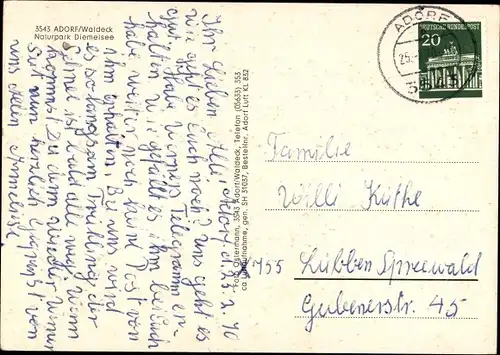 3543 ADORF/Waldeck
Naturpark Diemelsee
Ihr Lieben Alle! Adorf, d. 25. 2. 70
wie geht es Euch noch? Uns geht es
gut. Habe Telegramm er-
halten. Wie gefällt es ihm bei Euch
habe weiter noch keine Post von
ihm erhalten. Bei uns wird
es so langsam Frühling der
Schnee ist bald all
kommt Du denn wieder
Seit nun herzlich gegrüßt von
uns allen Anneliese
Foto Ostermann, 3543 Adorf/Waldeck, Telefon (05633) 353
gen. SH 31037, Bestellnr. Adorf Luft KL 832
ADORF
25.
DEUTSCHE BUNDESPOST
20
Familie
Willi Küthe
X 755 Lübben Spreewald
Gubenerstr. 45